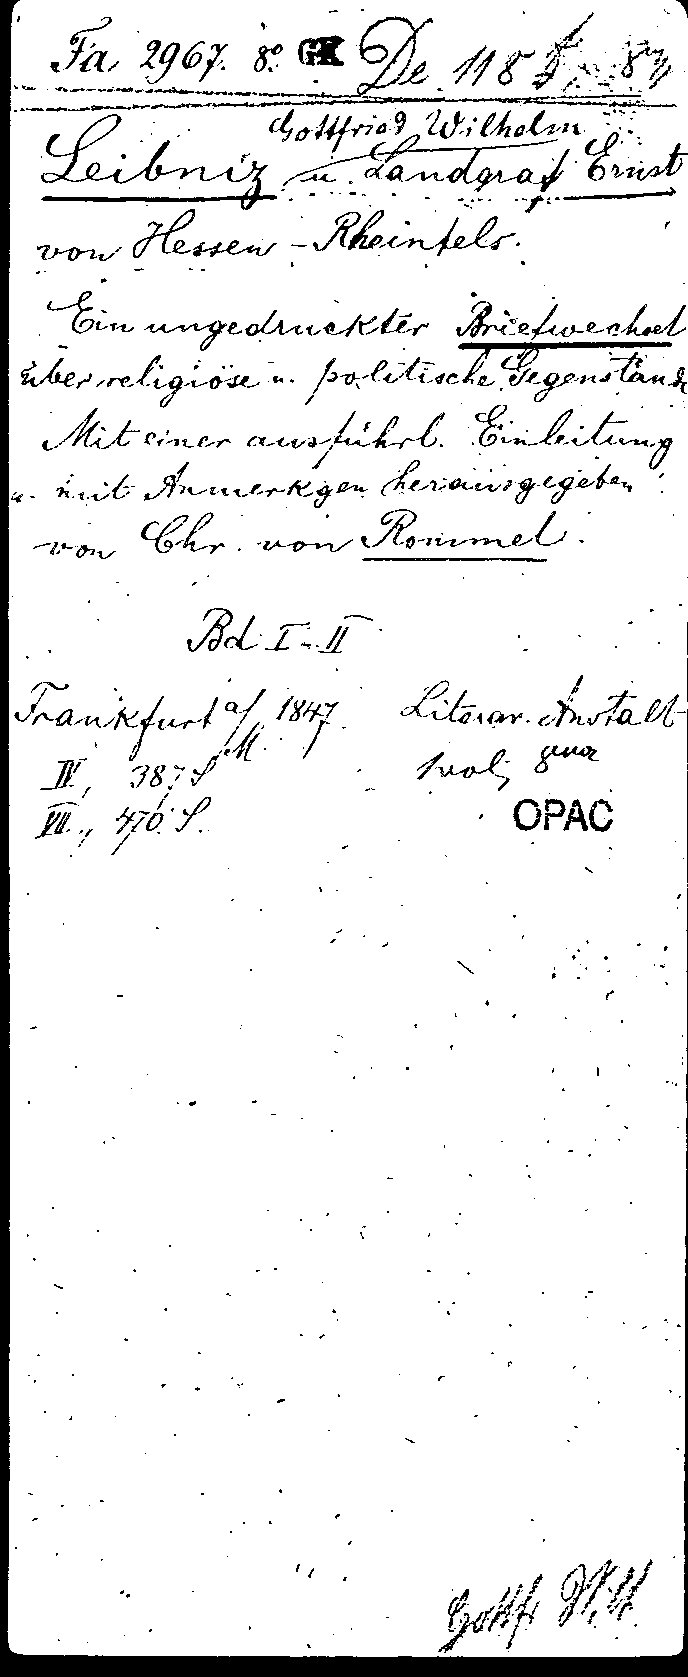 Fa 2967. 8º. GK De 118
Gottfried Wilhelm
Leibniz u. Landgraf Ernst
von Hessen-Rheinfels.
Ein ungedruckter Briefwechsel
über religiöse u. politische Gegenstände
Mit einer ausführl. Einleitung
u. mit Anmerkgen herausgegeben
von Chr. von Rommel.
Bd I-II
Frankfurt a/M. 1847 Literar. Anstalt
IV, 387 S
VII., 470. S.
OPAC
Gottfr. Wilh.